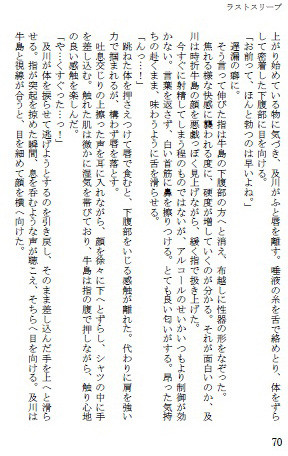 ラストスリーブ
上がり始めている物に気づき、及川がふと唇を離す。唾液の糸を舌で絡めとり、体をずら
して密着した下腹部に目を向ける。
「お前って、ほんと勃つのは早いよね。」
遅漏の癖に。
そう言って伸びた指は牛島の下腹部の方へと消え、布越しに性器の形をなぞった。
焦れる様な快感に襲われる度に、硬度が増していくのが分かる。それが面白いのか、及
川は時折牛島の顔を悪戯っぽく見上げながら、緩く指で扱き上げた。
今すぐに射精してしまう程のものではないが、アルコールのせいかいつもより制御が効
かない。言葉を返さず、白い首筋に鼻を擦りつける。とても良い匂いがする。昂った気持
ちの赴くまま、味わうように舌を滑らせる。
「んっ……！」
跳ねた体を押さえつけて唇で食むと、下腹部をいじる感触が離れた。代わりに肩を強い
力で掴まれるが、構わず唇を落とす。
吐息交じりの上擦った声を耳に入れながら、顔を徐々に下へとずらし、シャツの中に手
を差し込む。触れた肌は微かに湿気を帯びており、牛島は指の腹で押しながら、触り心地
の良い感触を楽しんだ。
「や…くすぐった…っ！」
及川が体を捩らせて逃げようとするのを引き戻し、そのまま差し込んだ手を上へと滑ら
せる。指が突起を掠めた瞬間、息を呑むような声が聴こえ、そちらへ目を向ける。及川は
牛島と視線が合うと、目を細めて顔を横へ向けた。
70